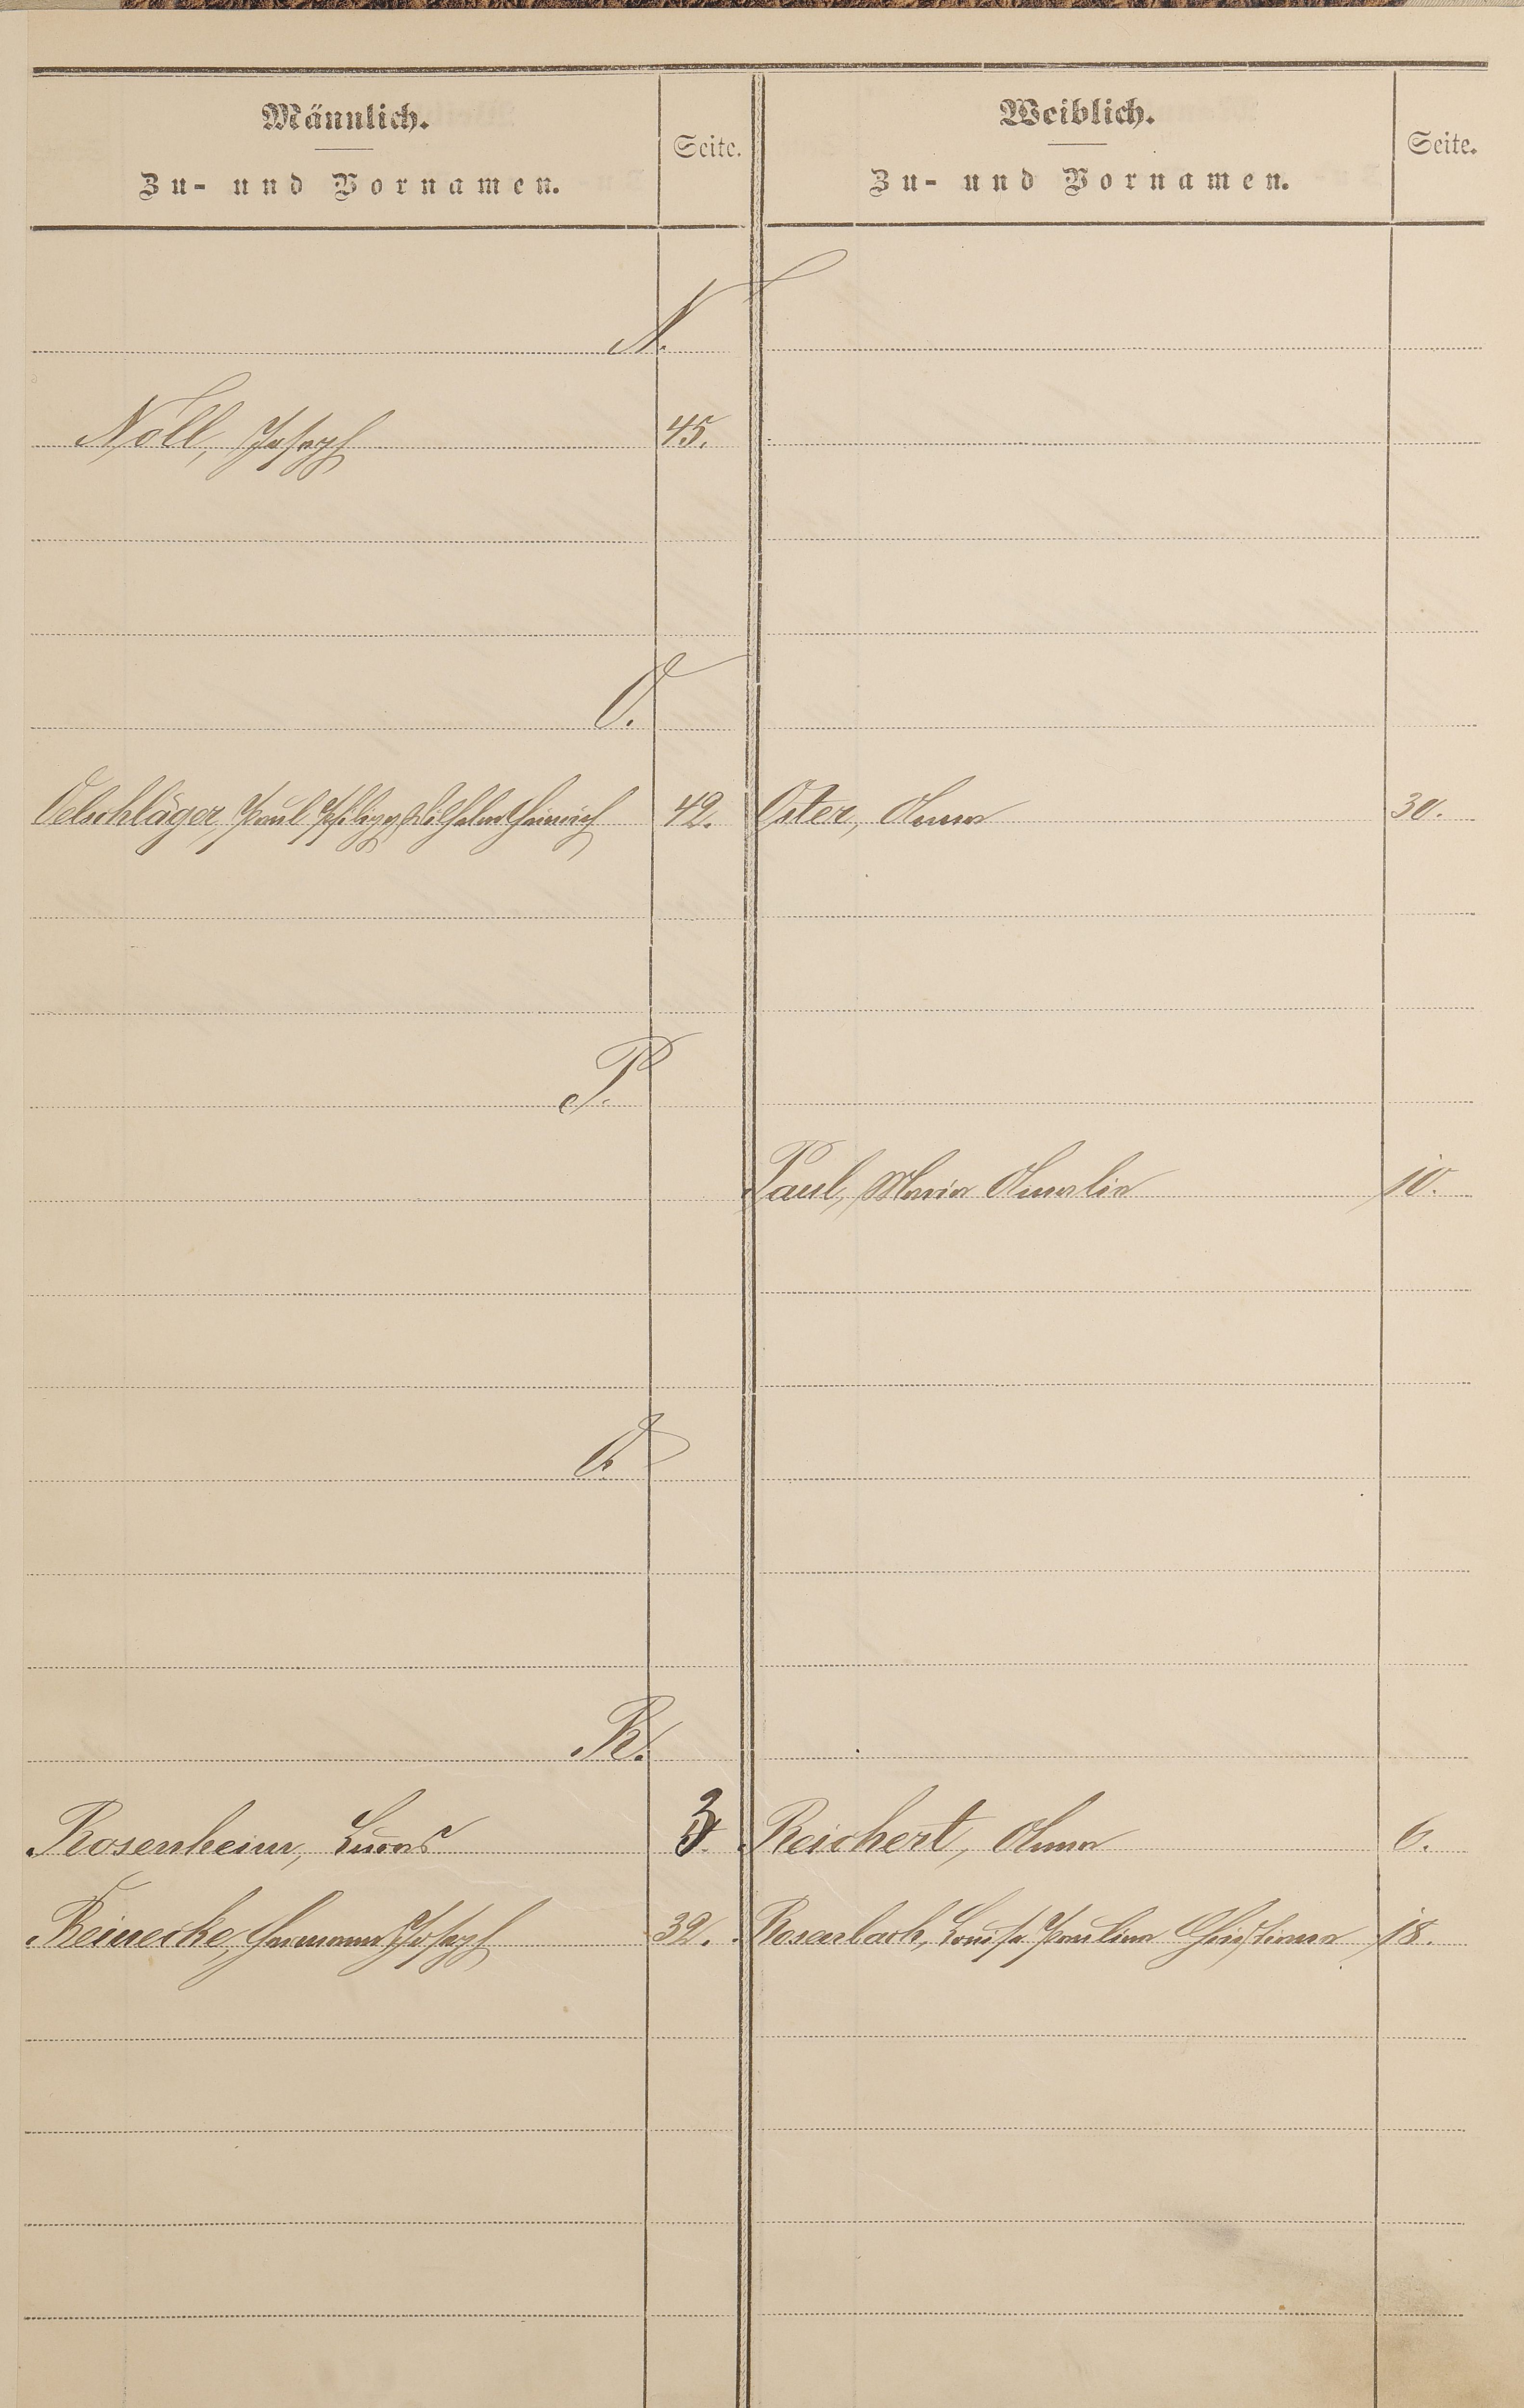 Männlich.
Zu- und Vornamen.
Seite.
Weiblich.
Zu- und Vornamen.
Seite.
N.
Nöll, Joseph 45.
O.
Oelschläger, Paul Philipp Wilhelm Heinrich 42. Oster, Anna 30.
P.
Paul, Maria Amalia 10.
Q.
R.
Rosenheim, Lucas 3. Reichert, Anna 6.
Reinecke, Hermann Joseph 32. Rosenbach, Louise Pauline Christiane 18.